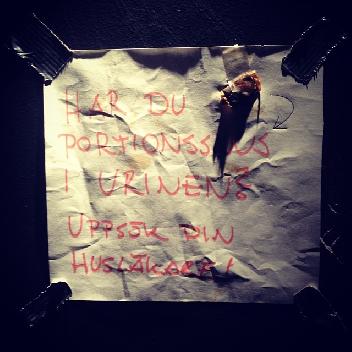 HAR DU
PORTIONSSNUS
I URINEN?
UPPSÖK DIN
HUSLÄKARE!